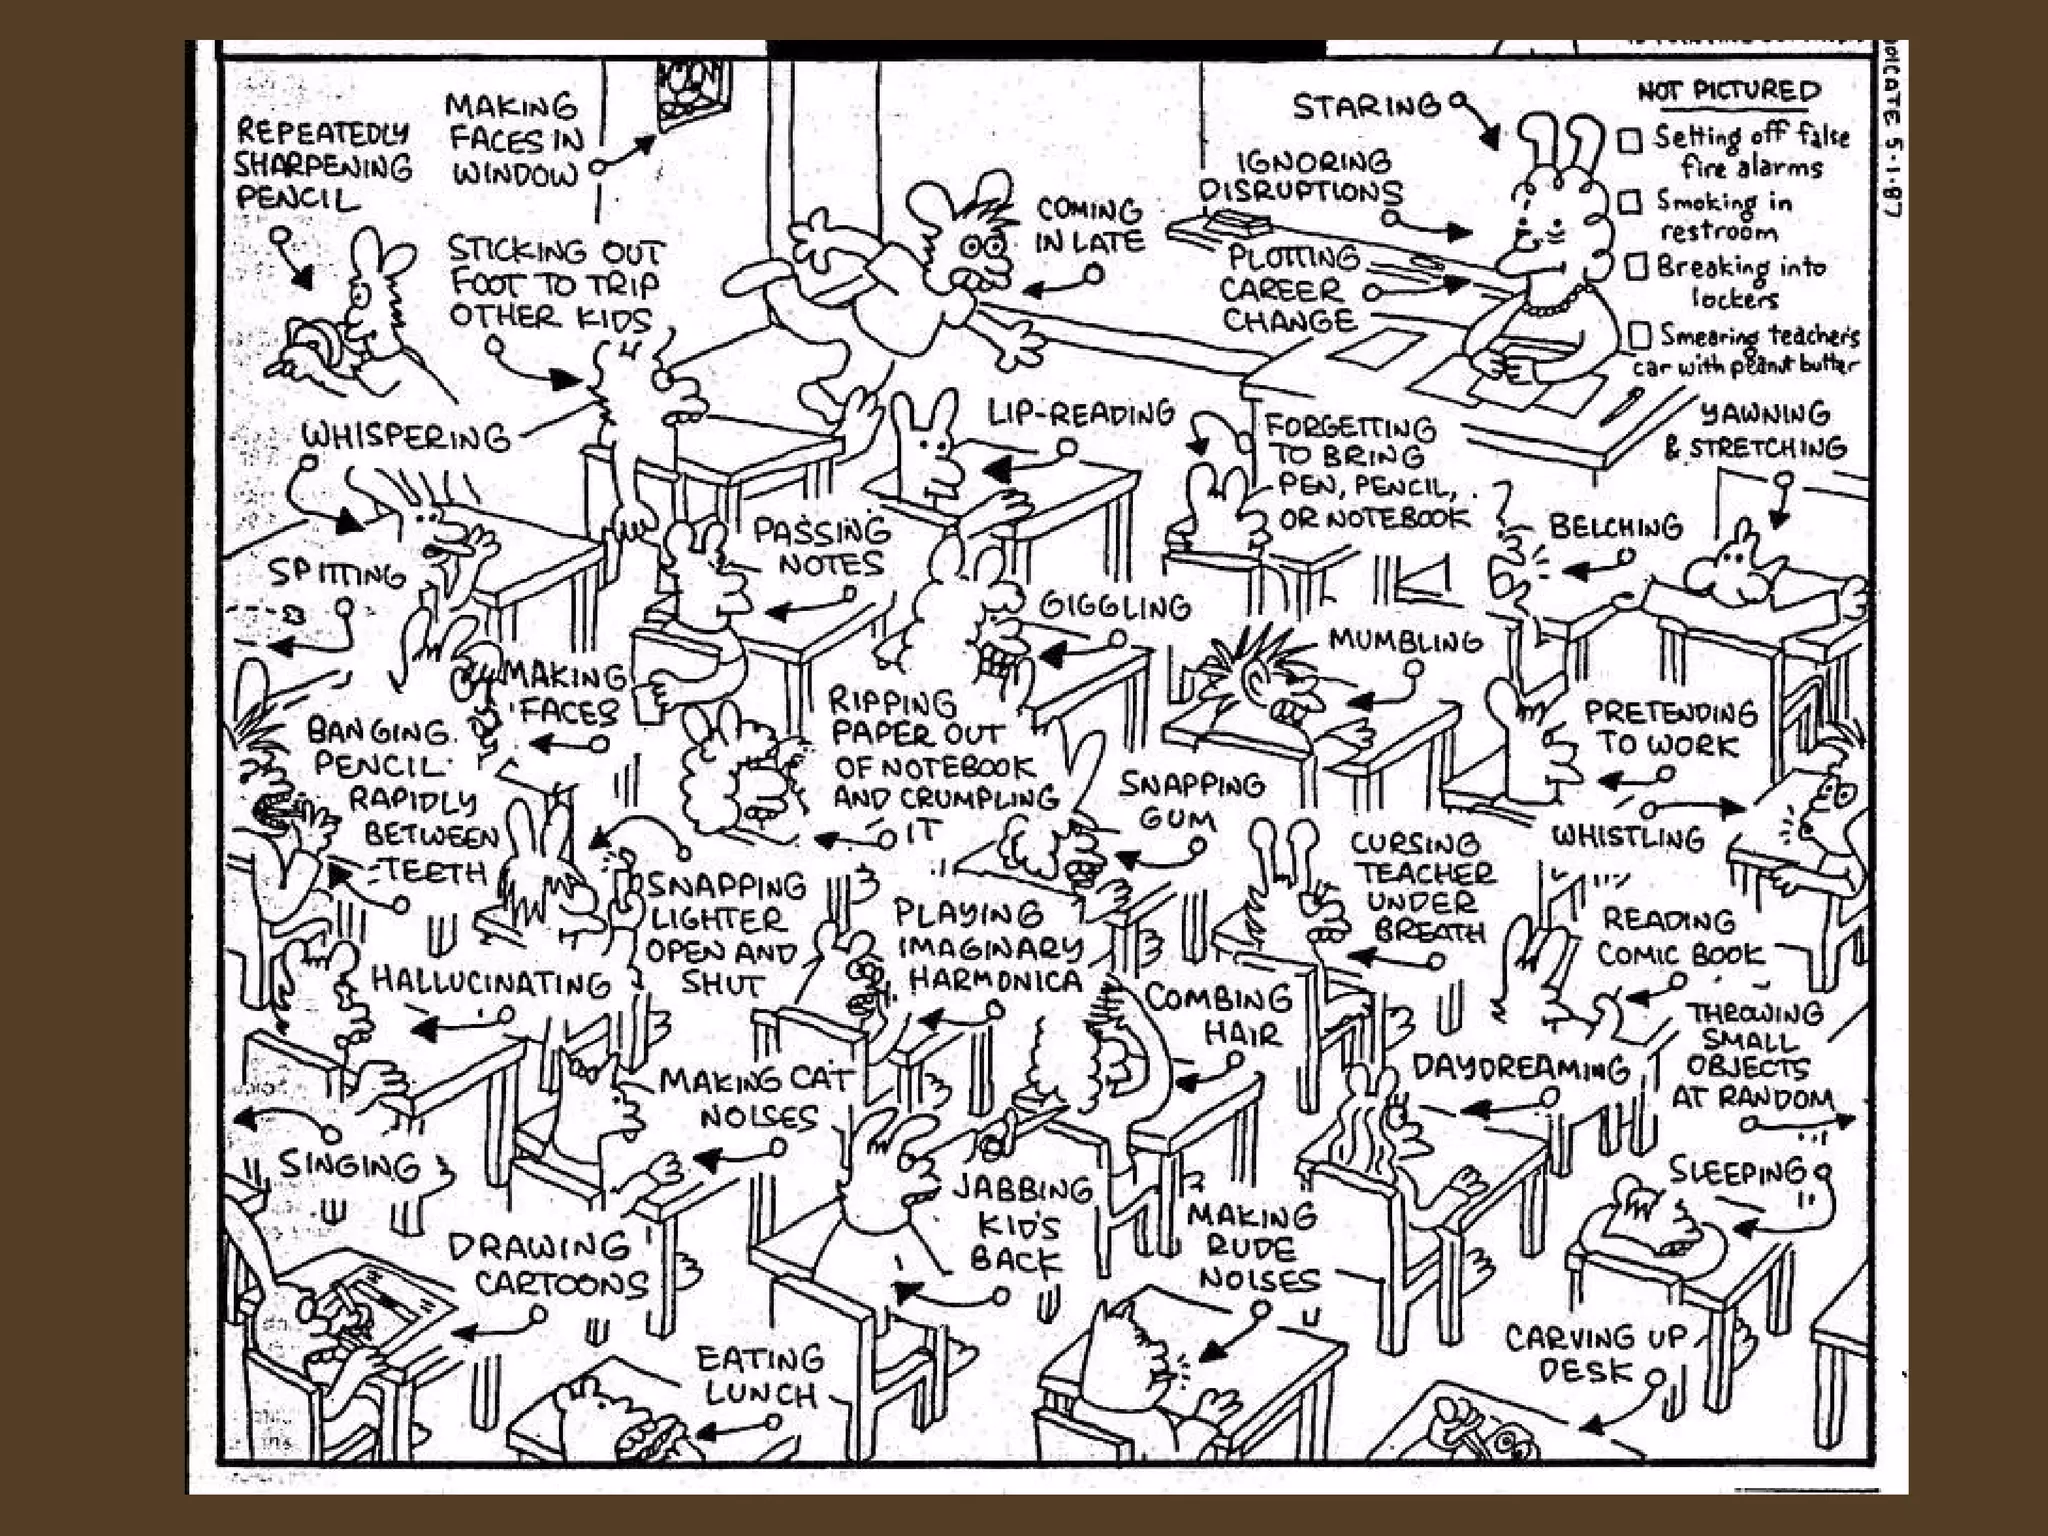 DICATE 5·1·87
NOT PICTURED
Setting off false
fire alarms
Smoking in
restroom
Breaking into
lockers
Smearing teacher's
car with peanut butter
REPEATEDLY
SHARPENING
PENCIL
MAKING
FACES IN
WINDOW
STICKING OUT
FOOT TO TRIP
OTHER KIDS
COMING
IN LATE
STARING
IGNORING
DISRUPTIONS
PLOTTING
CAREER
CHANGE
WHISPERING
LIP-READING
FORGETTING
TO BRING
PEN, PENCIL,
OR NOTEBOOK
YAWNING
& STRETCHING
SPITTING
PASSING
NOTES
GIGGLING
BELCHING
MUMBLING
MAKING
FACES
BANGING
PENCIL
RAPIDLY
BETWEEN
TEETH
RIPPING
PAPER OUT
OF NOTEBOOK
AND CRUMPLING
IT
SNAPPING
GUM
PRETENDING
TO WORK
WHISTLING
SNAPPING
LIGHTER
OPEN AND
SHUT
PLAYING
IMAGINARY
HARMONICA
CURSING
TEACHER
UNDER
BREATH
READING
COMIC BOOK
HALLUCINATING
COMBING
HAIR
THROWING
SMALL
OBJECTS
AT RANDOM
MAKING CAT
NOISES
DAYDREAMING
SINGING
JABBING
KID'S
BACK
MAKING
RUDE
NOISES
SLEEPING
DRAWING
CARTOONS
EATING
LUNCH
CARVING UP
DESK